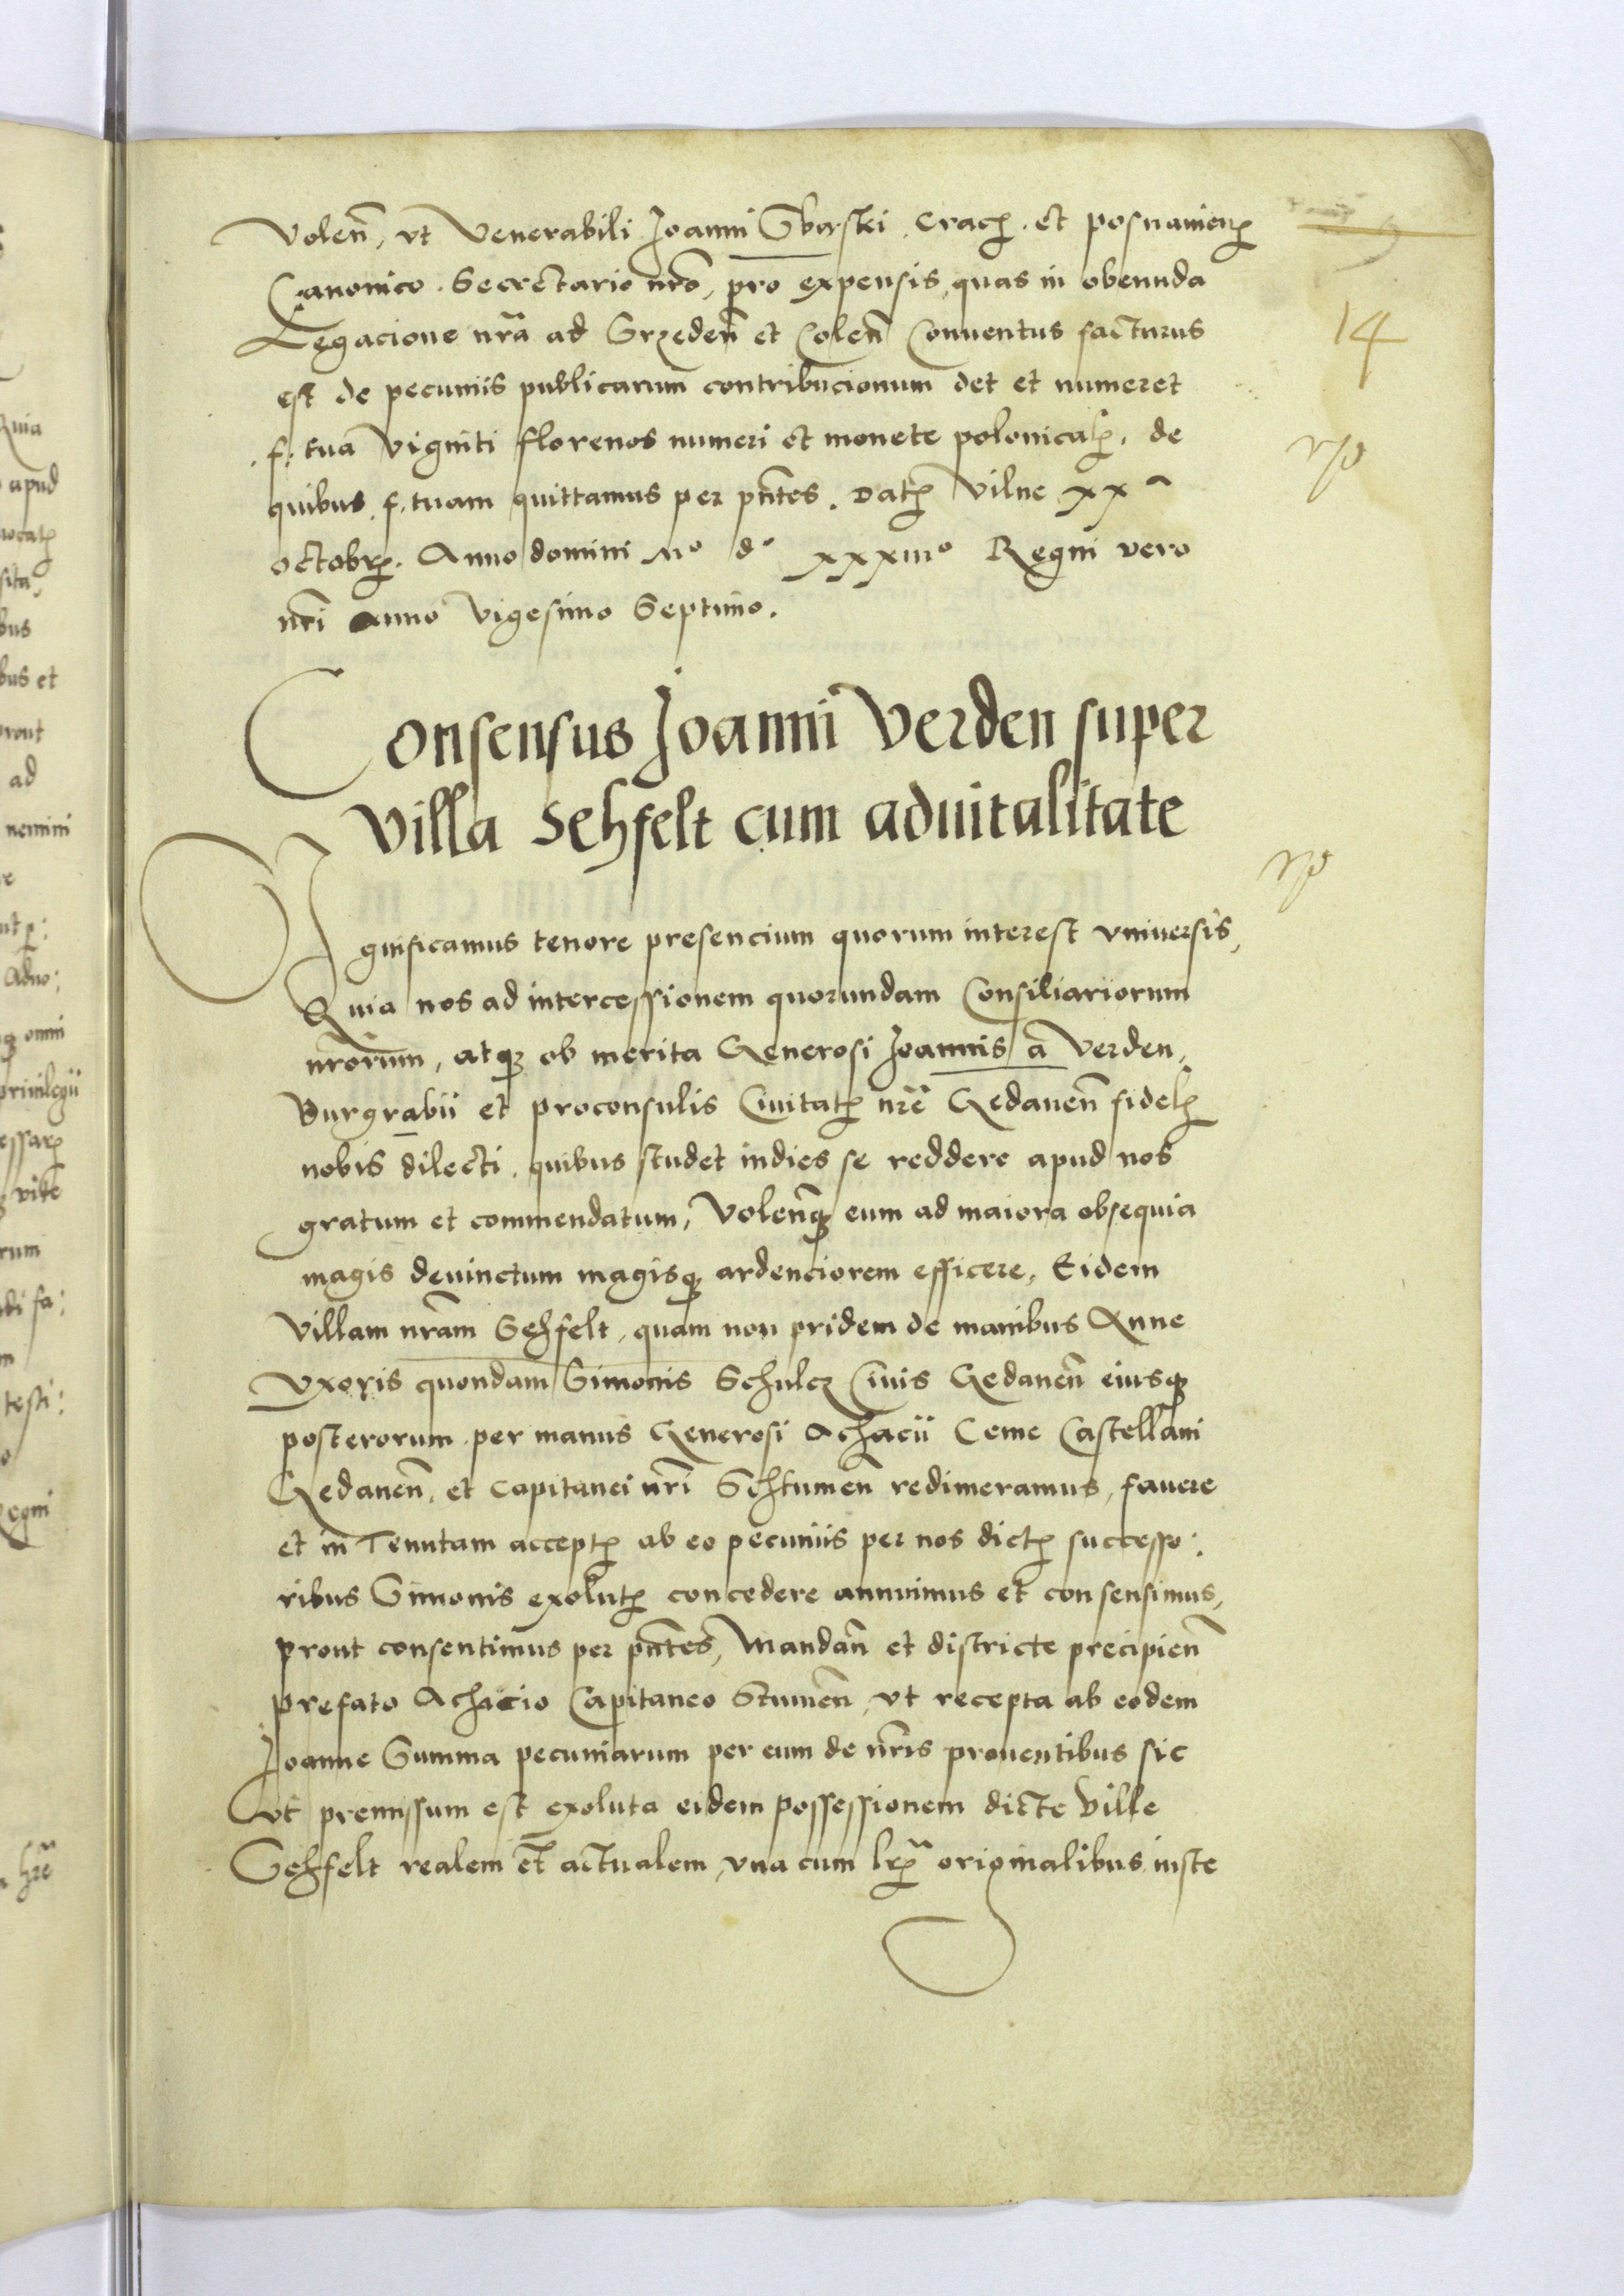 Volen̄, vt Venerabili Joanni Sbąski Cracꝭ. et posnanienꝭ
Canonico. Secretario nr̄o, pro expensis, quas in obeunda
Legacione nr̄a ad Srzeden̄ et Colen̄ Conuentus facturus
est de pecuniis publicarum contribucionum det et numeret
f: tua Viginti florenos numeri et monete polonicalꝭ. de
quibus. f. tuam quittamus per pn̄tes. Datꝭ Vilne xxa
octobrꝭ. Anno domini Mo do xxxiiio Regni vero
nr̄i anno Vigesimo Septimo.
Consensus Joanni Verden super
Villa Sehfelt cum aduitalitate
Significamus tenore presencium quorum interest vniuersis,
Quia nos ad intercessionem quorundam Consiliariorum
nr̄orum, atqꝫ ob merita Generosi Joannis a Verden,
Burgrabii et proconsulis Ciuitatꝭ nr̄e Gedanen̄ fidelꝭ
nobis dilecti. quibus studet indies se reddere apud nos
gratum et commendatum, Volen̄qꝫ eum ad maiora obsequia
magis deuinctum magisqꝫ ardenciorem efficere, Eidem
Villam nr̄am Sehfelt, quam non pridem de manibus Anne
Vxoris quondam Simonis Schulcz Ciuis Gedanen̄ eiusqꝫ
posterorum per manus Generosi Achacii Ceme Castellani
Gedanen̄. et Capitanei nr̄i Schtumen̄ redimeramus, fauere
et in Tenutam acceptꝭ ab eo pecuniis per nos dictꝭ successo:
ribus Simonis exolutꝭ concedere annuimus et consensimus,
prout consentimus per pn̄tes, Mandan̄ et districte precipien̄
prefato Achacio Capitaneo Stumen̄, vt recepta ab eodem
Joanne Summa pecuniarum per eum de nr̄is prouentibus sic
vt premissum est exoluta eidem possessionem dicte Ville
Sehfelt realem et actualem, vna cum lrꝭ originalibus iuste
14